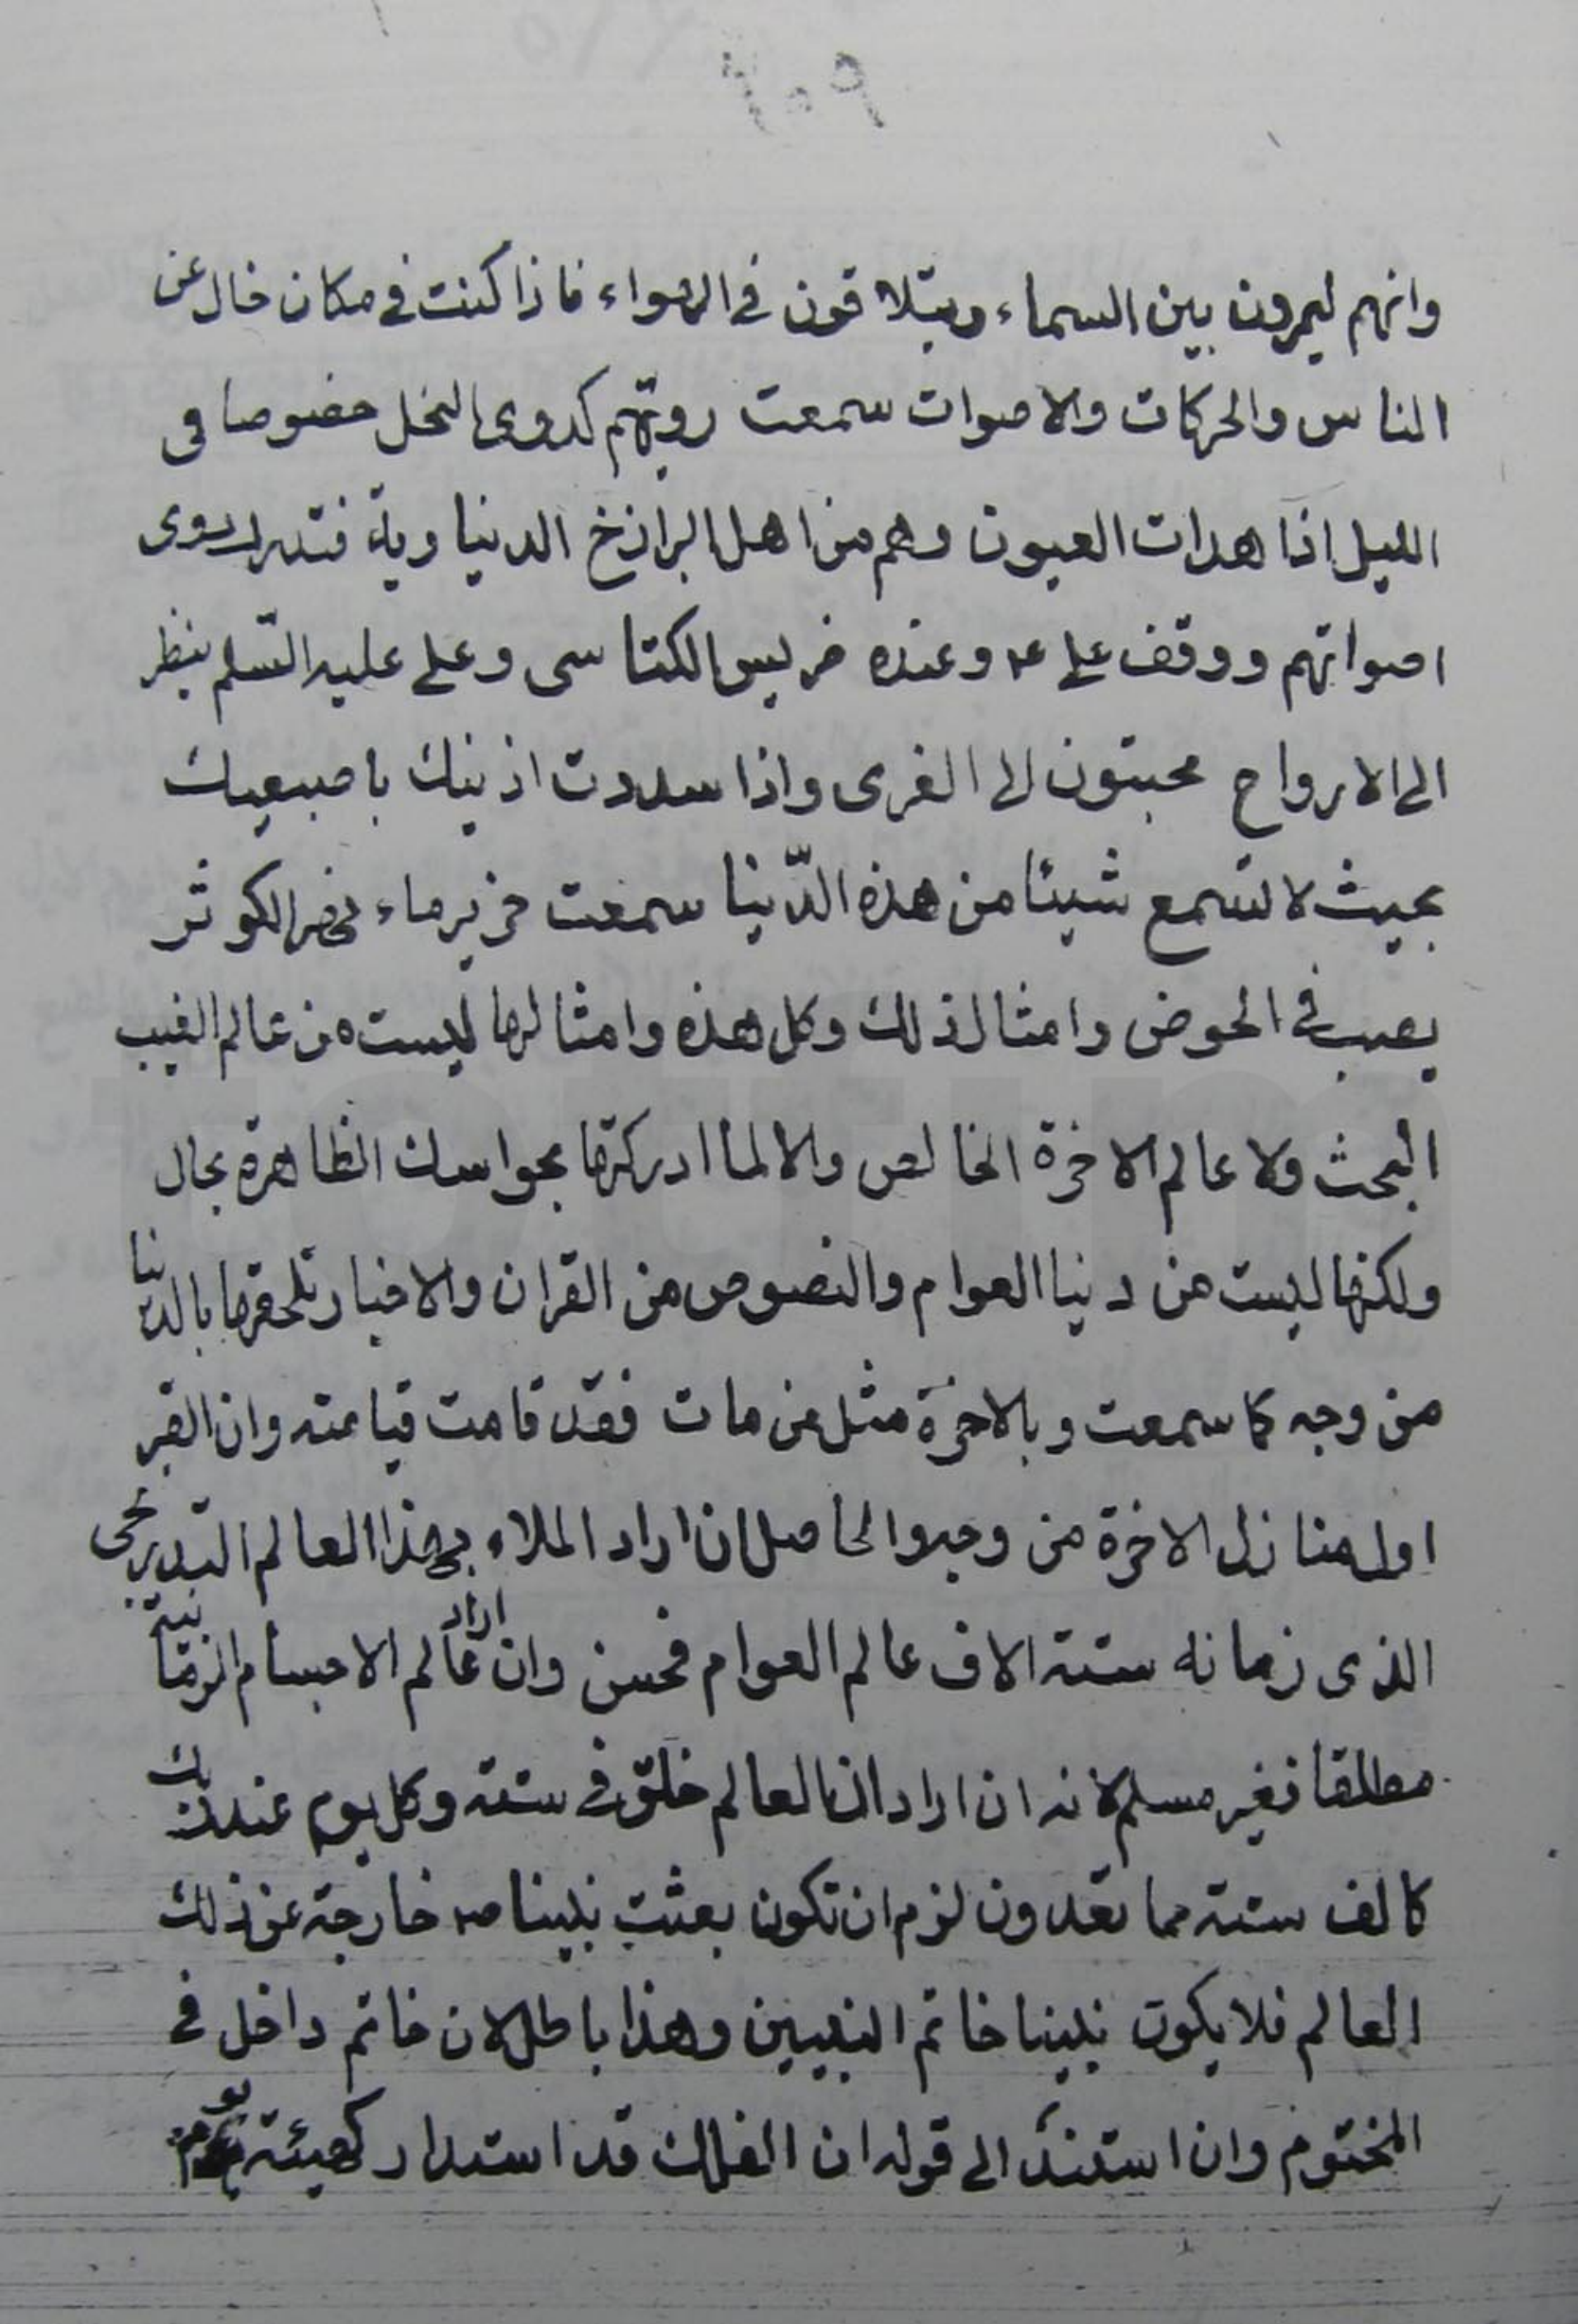 وانهم ليمرون بين السماء ويتلاقون فى الهواء فاذا كنت فى مكان خال عن
الناس والحركات والاصوات سمعت رويتهم كدوى النحل خصوصا فى
الليل اذا هدات العيون وهم من اهل البرازخ الدنياوية فتدرك دوى
اصواتهم ووقف على ع وعنده ضريس الكتاسى وعلى عليه السّلم ينظر
الى الارواح محبتون الى الغرى واذا سددت اذنيك باصبعيك
بحيث لا تسمع شيئا من هذه الدّنيا سمعت خرير ماء نهر الكوثر
يصب فى الحوض وامثال ذلك وكل هذه وامثالها ليست من عالم الغيب
البحث ولا عالم الاخرة الخالص والا لما ادركتها بحواسك الظاهرة بحال
ولكنها ليست من دنيا العوام والنصوص من القران والاخبار تلحقها بالدنيا
من وجه كما سمعت وبالاخرة مثل من مات فقد قامت قيامته وان القبر
اول منازل الاخرة من وجه والحاصل ان اراد الملاء بهذا العالم التدريجى
الذى زمانه ستته الاف عالم العوام فحسن وان اراد عالم الاجسام الزمانية
مطلقا فغير مسلم لانه ان اراد ان العالم خلق فى ستته وكل يوم عند ربك
كالف ستته مما تعدون لزم ان تكون بعثت نبينا ص خارجة عن ذلك
العالم فلا يكون نبينا خاتم النبيين وهذا باطل لان خاتم داخل فى
المختوم وان استند الى قوله ان الفلك قد استدار كهيئته يوم